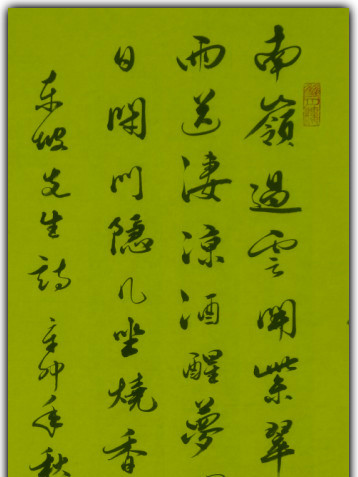 南嶺過雲開紫翠
雨送淒涼酒醒夢
日閉門隱几坐燒香
東坡先生詩 辛卯年秋